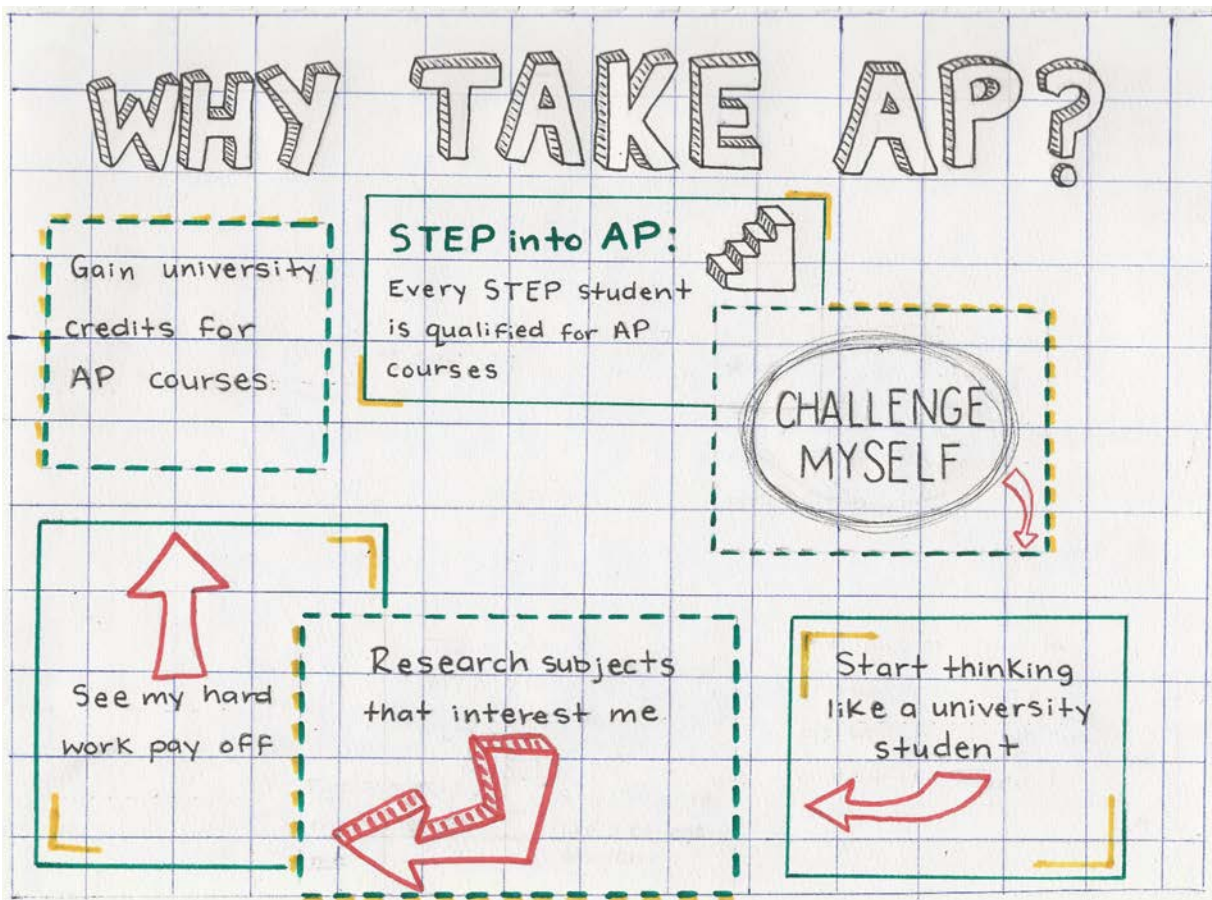 WHY TAKE AP?
Gain university
credits for
AP courses.
STEP into AP:
Every STEP student
is qualified for AP
courses
CHALLENGE
MYSELF
See my hard
work pay off
Research subjects
that interest me
Start thinking
like a university
student